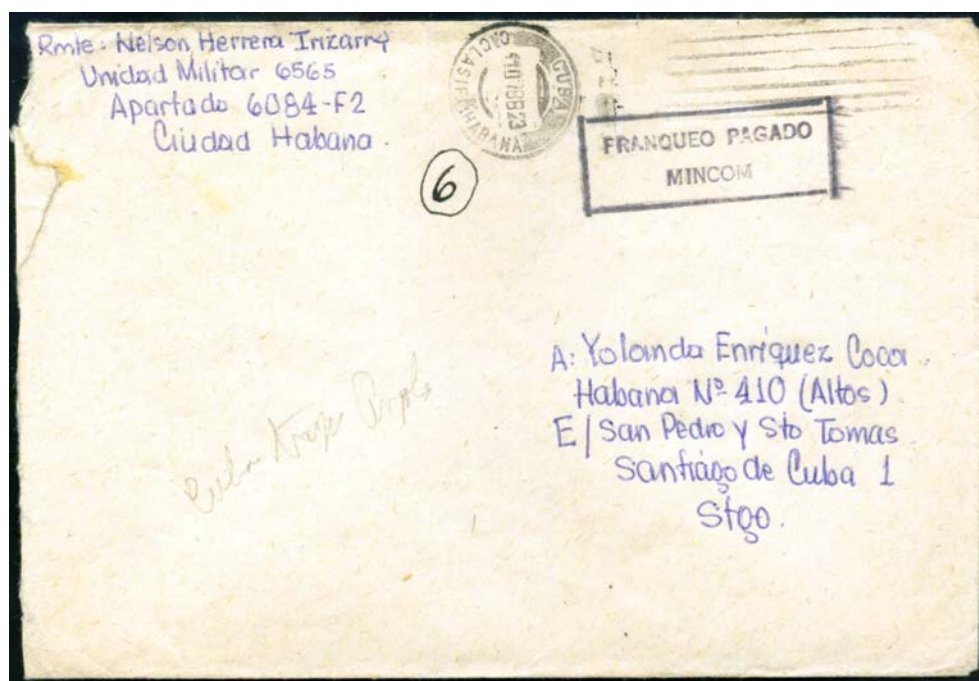 Rmte: Nelson Herrera Irizarry
Unidad Militar 6565
Apartado 6084-F2
Ciudad Habana.
CUBA
HABANA
FRANQUEO PAGADO
MINCOM
6
A: Yolanda Enríquez Coca
Habana Nº 410 (Altos)
E/ San Pedro y Sto Tomas
Santiago de Cuba 1
Stgo.